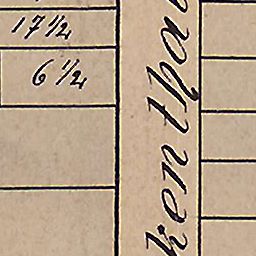 17 1/2
6 1/2
kenthal